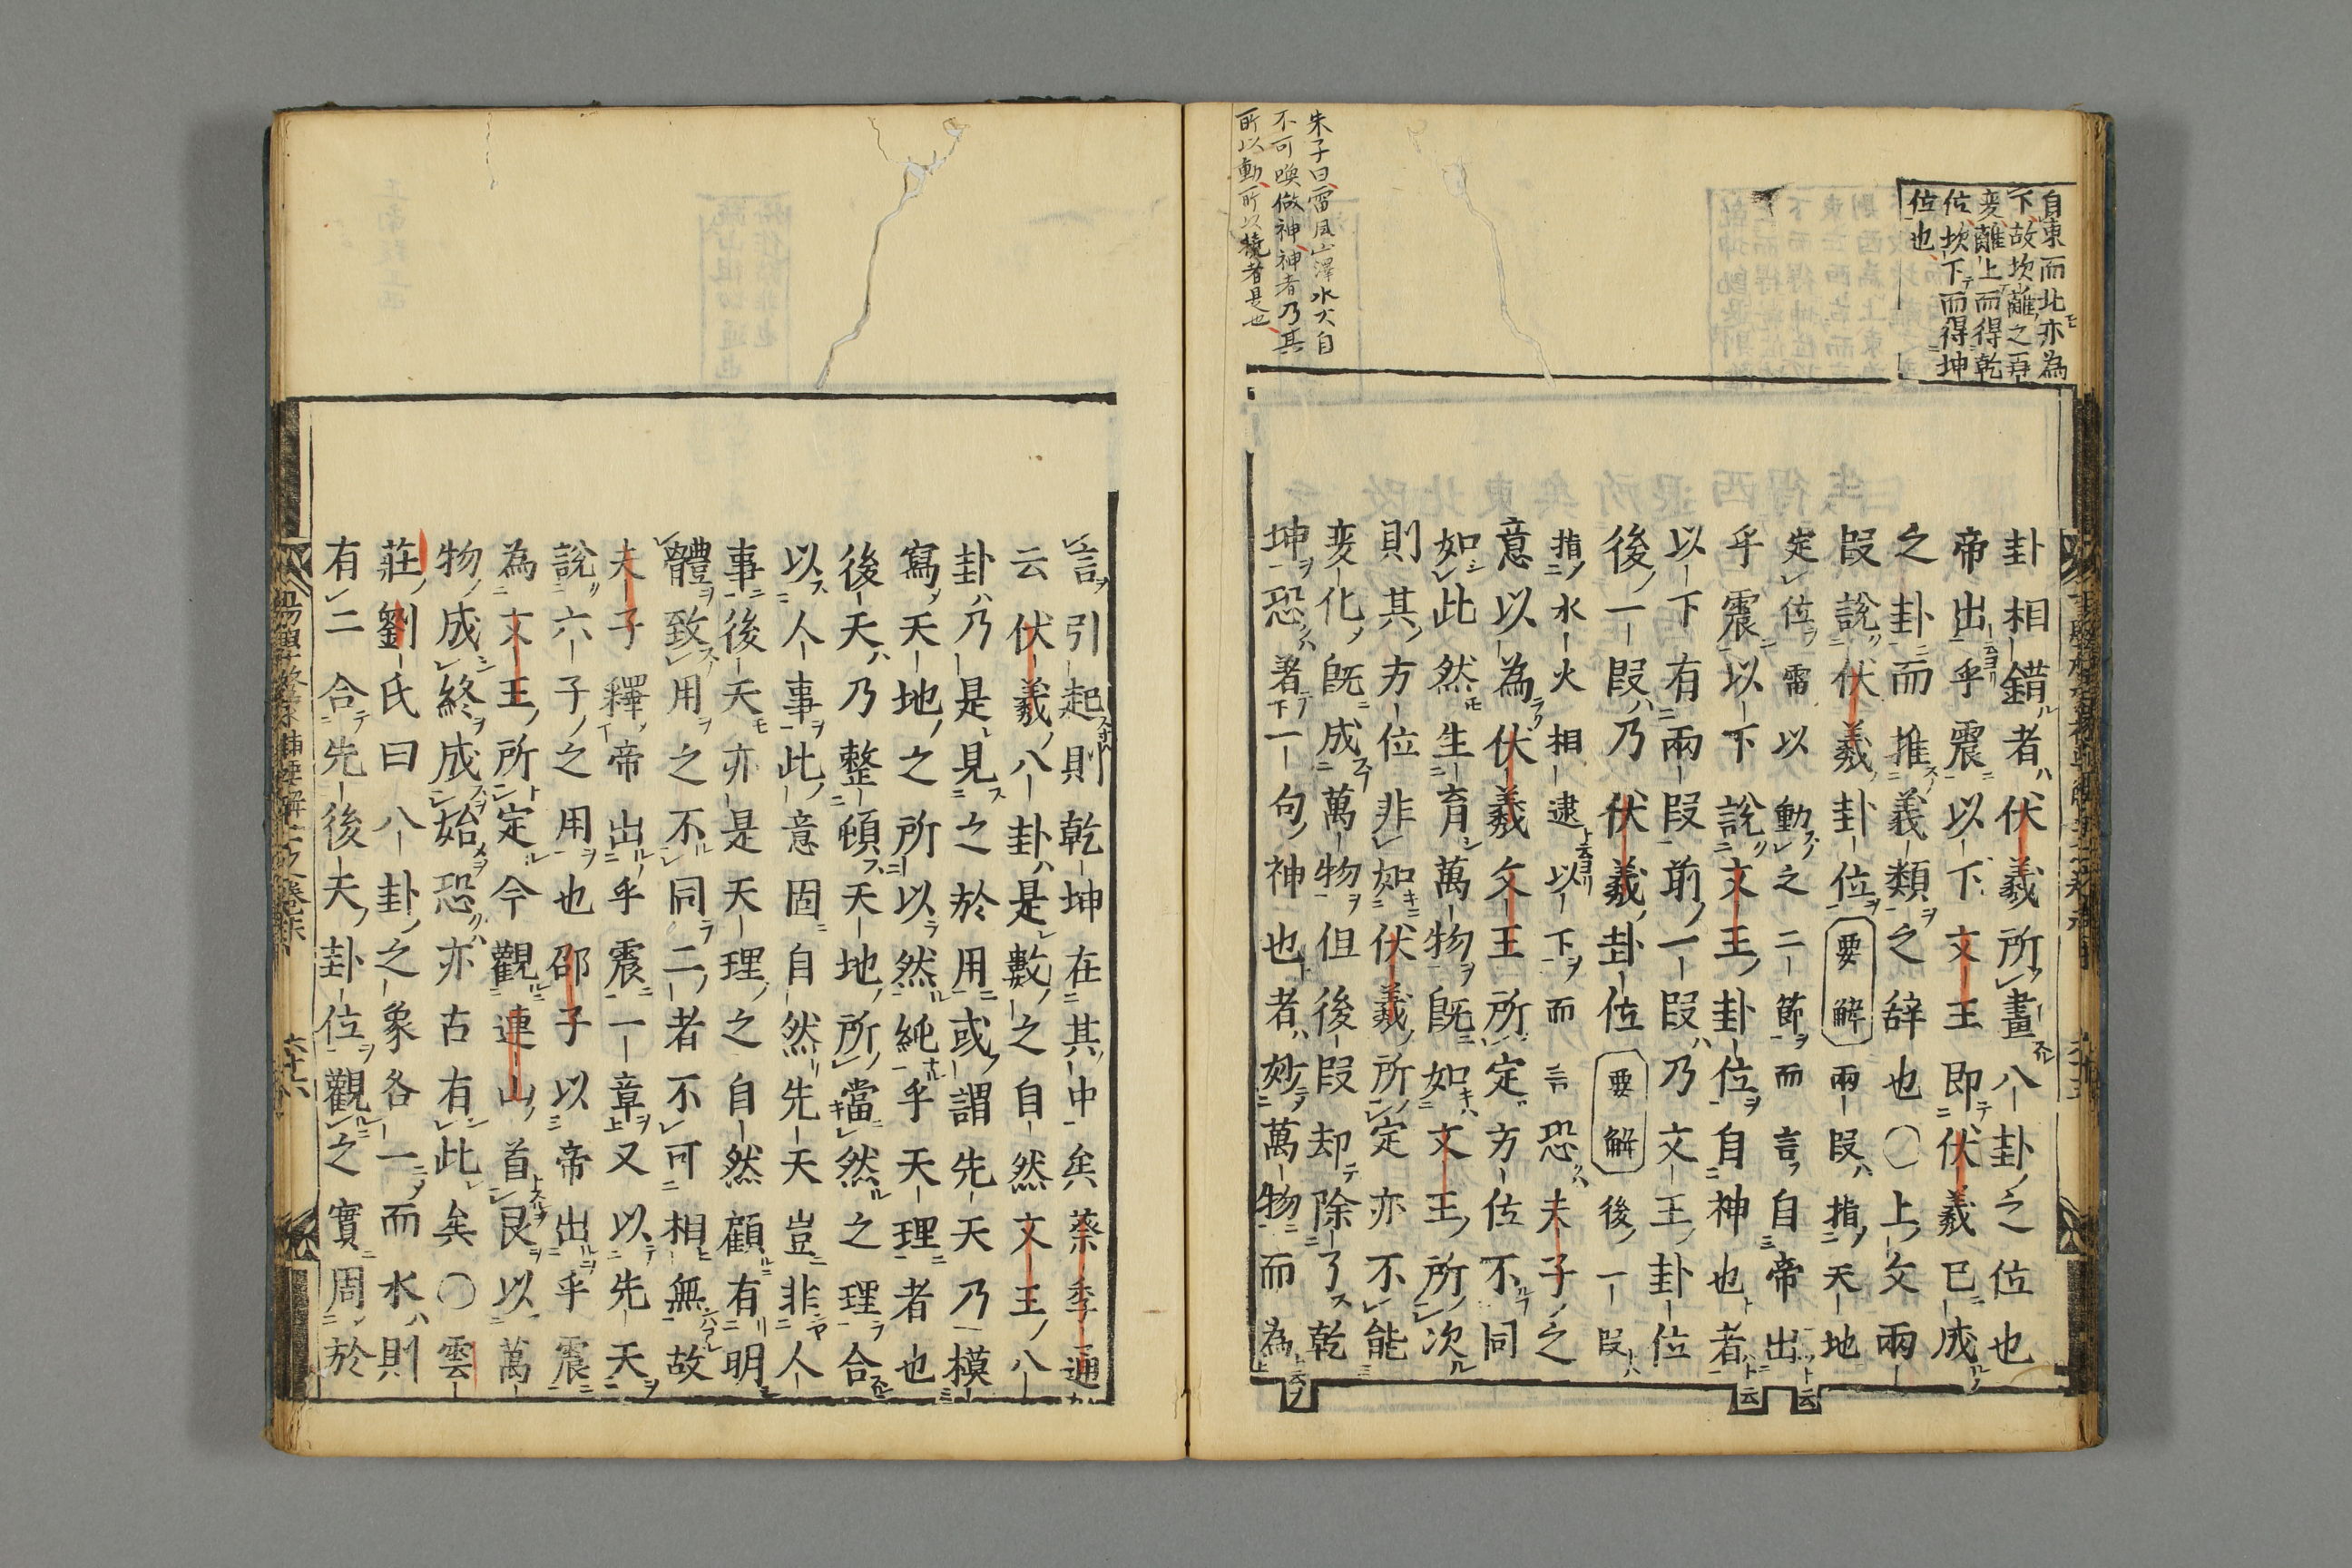 自東而北亦為
下故坎離之再
変離上而得乾
位坎下而得坤
位也
朱子曰雷風山澤水火自
不可喚做神神者乃其
所以動所以撓者是也
卦相錯者伏羲所畫八卦之位也
帝出乎震以下文王即伏羲已成
之卦而推義類之辞也〇上文兩
段説伏羲卦位要解兩段指天地
定位雷以動之二節而言自帝出
乎震以下説文王卦位自神也者
以下有兩段前一段乃文王卦位
後一段乃伏羲卦位要解後一段
指水火相逮以下而言恐夫子之
意以為伏羲文王所定方位不同
如此然生育萬物既如文王所次
則其方位非如伏羲所定亦不能
変化既成萬物但後段却除了乾
坤恐著一句神也者妙萬物而為
言引起則乾坤在其中矣蔡季通
云伏羲八卦是數之自然文王八
卦乃是見之於用或謂先天乃模
寫天地之所以然純乎天理者也
後天乃整頓天地所當然之理合
以人事此意固自然先天豈非人
事後天亦是天理之自然顧有明
體致用之不同二者不可相無故
夫子釋帝出乎震一章又以先天
説六子之用也邵子以帝出乎震
為文王所定今觀連山首艮以萬
物成終成始恐亦古有此矣〇雲
莊劉氏曰八卦之象各一而水則
有二合先後天卦位觀之實周於
六十六